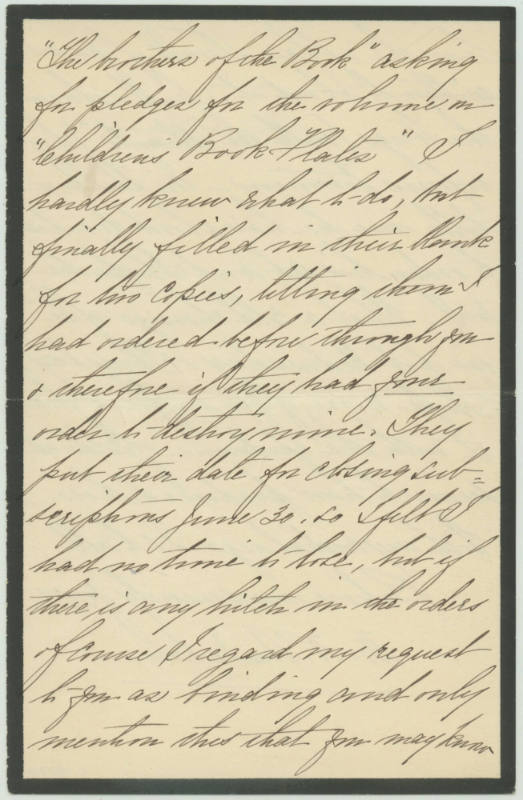 "The brothers of the Book" asking
for pledges for the volume on
"Children's Book-Plates" I
hardly knew what to do, but
finally filled in their blank
for two copies, telling them I
had ordered before through you
& therefore if they had your
order to destroy mine. They
put their date for closing sub-
scriptions June 30. so I felt I
had no time to lose, but if
there is any hitch in the orders
of course I regard my request
to you as binding and only
mention this that you may know